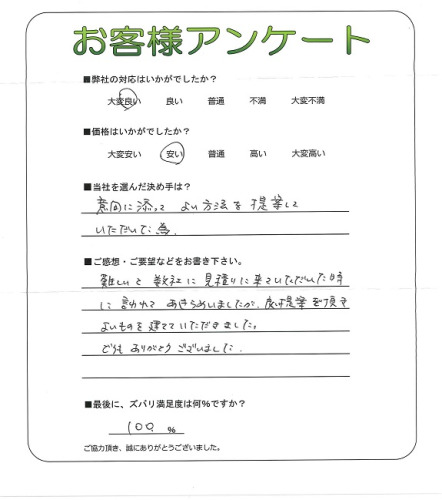 お客様アンケート
■弊社の対応はいかがでしたか？
大変良い 良い 普通 不満 大変不満
■価格はいかがでしたか？
大変安い 安い 普通 高い 大変高い
■当社を選んだ決め手は？
意向に添って よい方法を提案して
いただいた為.
■ご感想・ご要望などをお書き下さい。
難しいと数社に見積りに来ていただいた時
に言われて あきらめいましたが、提案を頂き
よいものを建てていただきました。
どうも ありがとうございました.
■最後に、ズバリ満足度は何%ですか？
100 %
ご協力頂き、誠にありがとうございました。